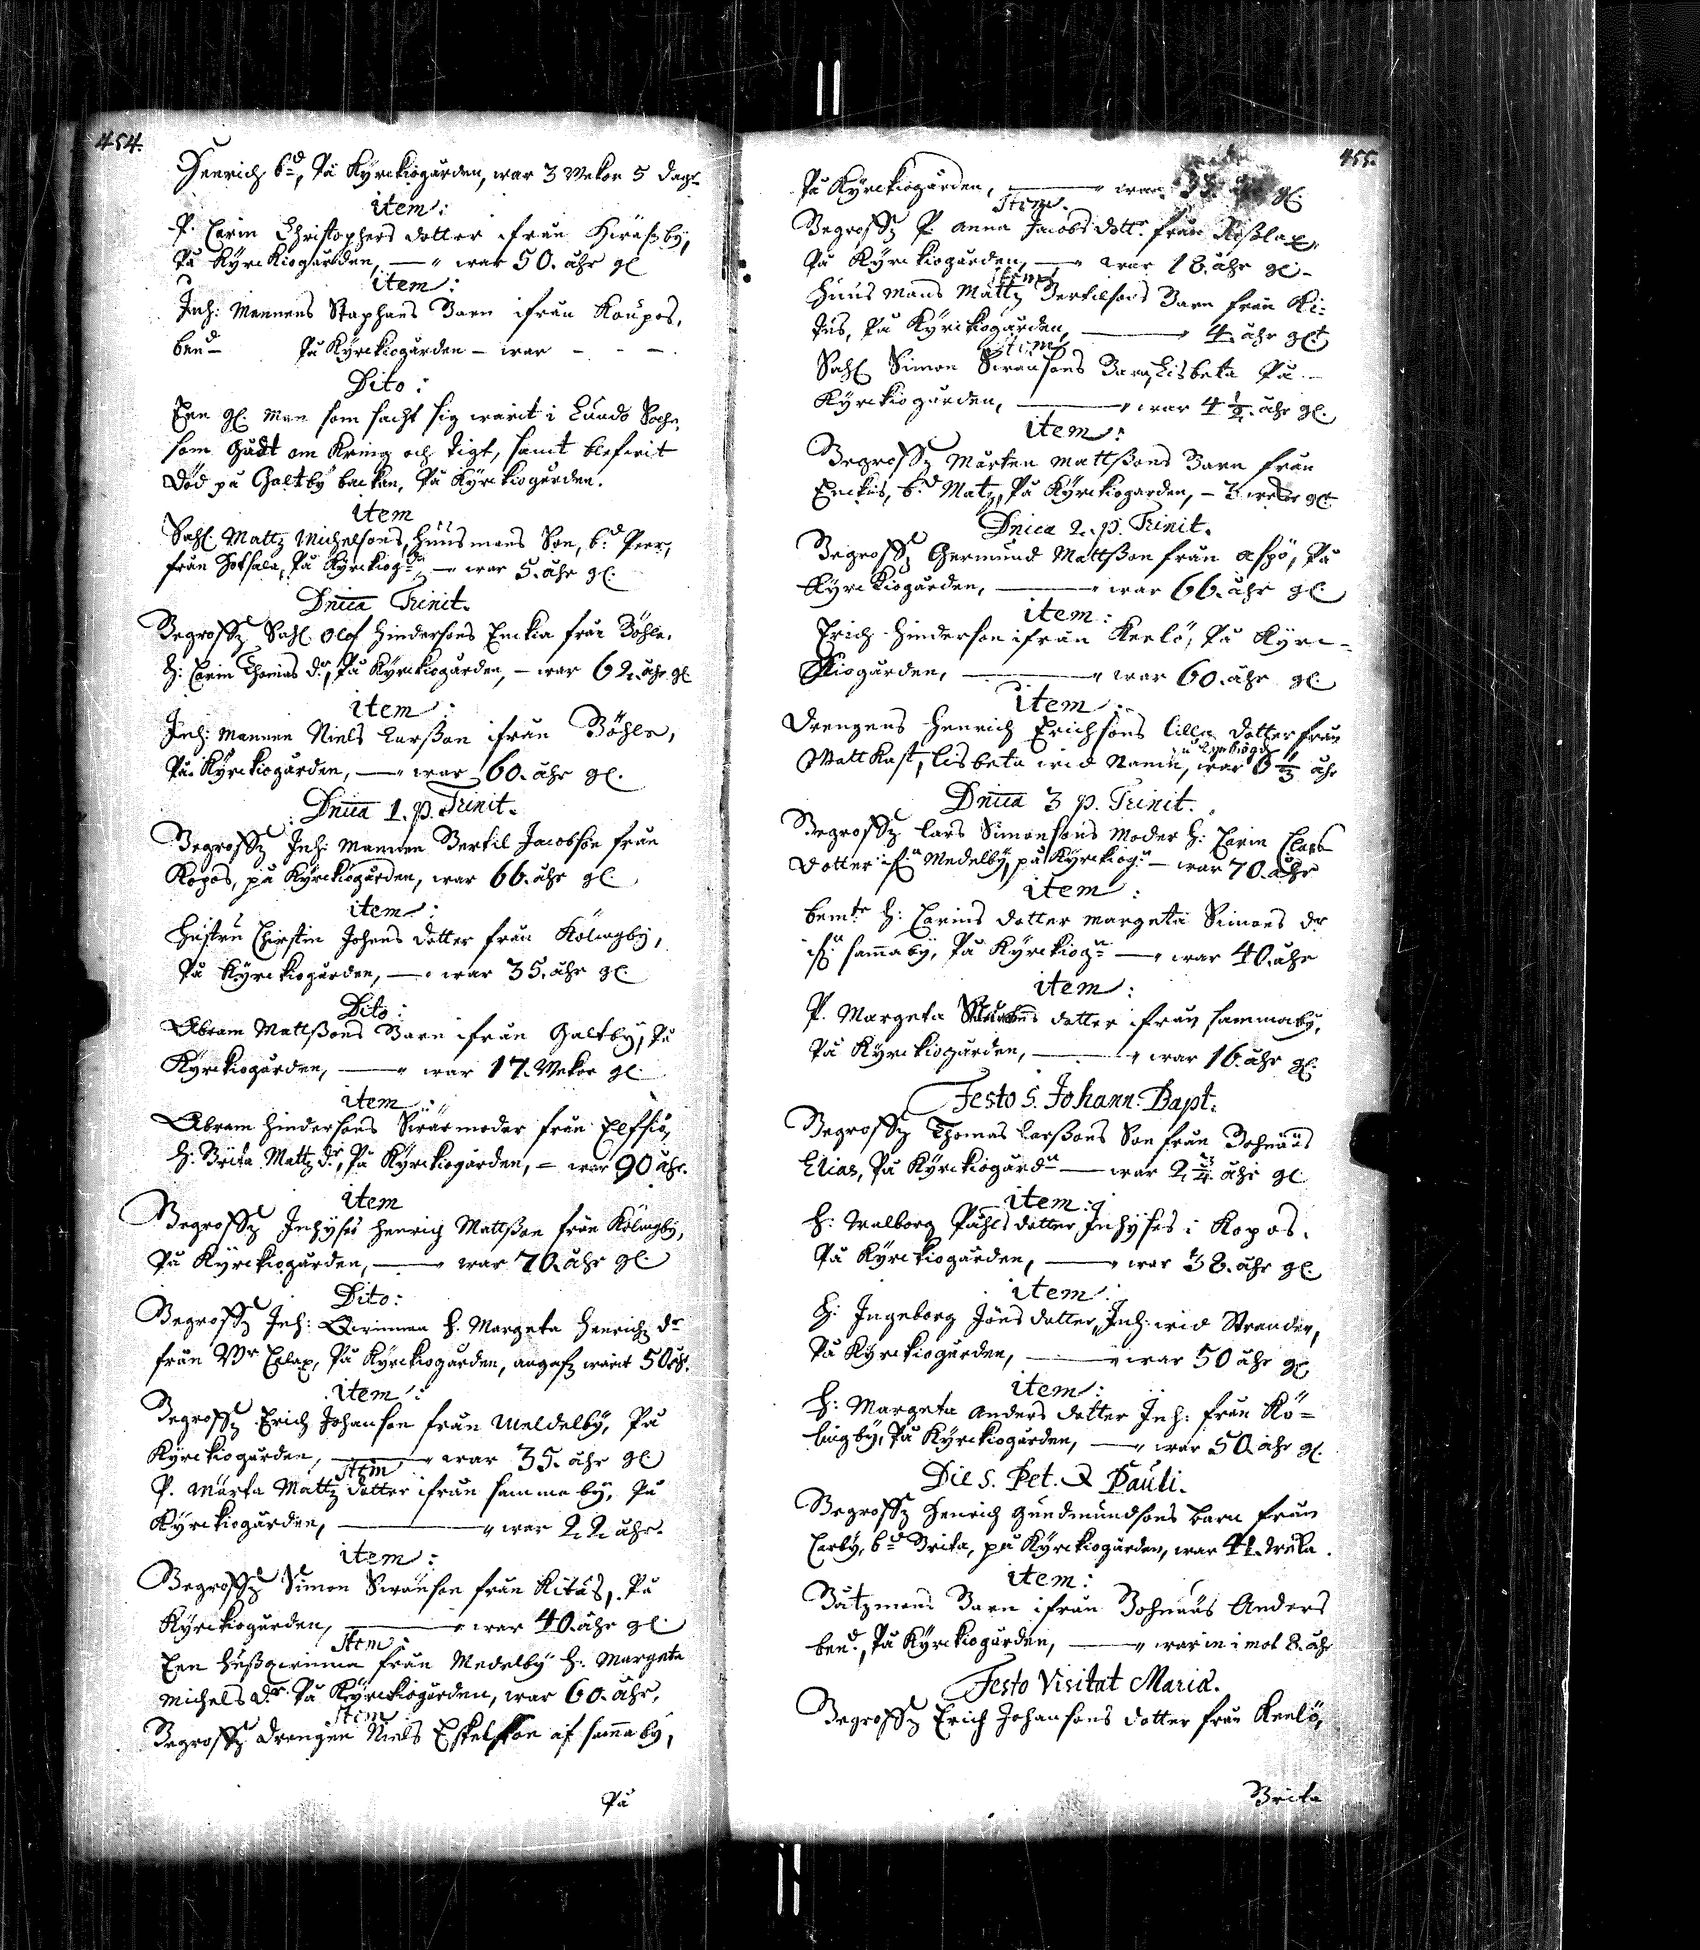 454.
Henrich b:d, På Kyrckiogården, war 3 Wekor 5 dagr
item:
P. Carin Christophers dotter ifrån Hwäfsby,
På Kyrckiogården, — war 50. åhr gl
item:
Inh: Mannens Staphans Barn ifrån Koupos,
ben:d På Kyrckiogården – war - - -
Dito:
Een gl. man som sacht sig warit i Lundo Sochn,
som gådt om kring och tigt, samt blefwit
död på Galtby backen, På Kyrckiogården.
item
Sahl. Mattz Michelsons, Huusmans Son, b:d Peer,
från Hotsala, På Kyrckiog:n — war 5. åhr gl.
Dnica Trinit.
Begrofz Sahl. Olof Hindersons Enckia från Böhle,
H: Carin Thomas d:r, På Kyrckiogården, — war 62. åhr gl
item:
Inh: Mannen Niels Larßon ifrån Böhle,
På Kyrckiogården, — war 60. åhr gl.
Dnica 1. p. Trinit.
Begrofz Inh: Mannen Bertil Jacobson från
Kopos, på Kyrckiogården, war 66. åhr gl
item:
Hustru Chirstin Johans dotter från Kölingby,
På Kyrckiogården, — war 35. åhr gl.
Dito:
Abram Mattßons Barn ifrån Galtby, På
Kyrckiogården, — war 17. Wekor gl.
item:
Abram Hindersons Swärmoder från Elfsiö,
H: Brita Mattz d:r, På Kyrckiogården, – war 90 åhr.
item
Begrofz Inhyses Henrich Mattßon från Kölingby,
På Kyrckiogården, — war 70. åhr gl.
Dito:
Begrofz Inh: Qwinnan H. Margeta Henrichz d:r
från Wr Erlax, På Kyrckiogården, angafz warit 50 åhr.
item:
Begrofz Erich Johanson från Meldelby, På
Kyrckiogården, — war 35. åhr gl
Item
P. Marta Mattz dotter ifrån samma by, På
Kyrckiogården, — war 22 åhr.
item:
Begrofz Simon Swänson från Kitus, På
Kyrckiogården, — war 40. åhr gl.
Item:
Een Husqwinna från Medelby H: Margeta
Michels d:r På Kyrckiogården, war 60. åhr.
Item
Begrofz Drengen Niels Eskelßon af sama by,
På
455.
På Kyrckiogården, — war gl.
Item.
Begrofz P. Anna Jacobs dott:r från Roßlax,
På Kyrckiogården, — war 18. åhr gl.
Item
Huus mans Mattz Bertilsons Barn från Ki=
tus, På Kyrckiogården, — 4. åhr gl.
Item
Sahl Simon Swensons Barn Lisbeta På
Kyrckiogården, — war 4 1/2. åhr gl.
item:
Begrofz Mårten Mattßons Barn från
Enckus, b:d Matz, På Kyrckiogården, – 3 wekor gl.
Dnica 2. p. Trinit.
Begrofz Germund Mattßon från Aspö, På
Kyrckiogården, — war 66. åhr gl.
item:
Erich Hinderson ifrån Keelö, På Kyrc=
kiogården, — war 60. åhr gl
item:
Drengens Henrich Erichsons lilla dotter från
på Kyrckiog:
Wattkast, Lisbeta wid Namn, war åhr
Dnica 3 p. Trinit.
Begrofz Lars Simonsons Moder H: Carin Clas
dotter ifr:n Medelby, på Kyrckiog:n — war 70. åhr
item:
bem:te H: Carins dotter Margeta Simons d:r
ifr:n sama by, På Kyrckiog:n — war 40. åhr
item:
P. Margeta dotter ifrån sammaby,
På Kyrckiogården, — war 16. åhr gl.
Festo S. Johann: Bapt.
Begrofz Thomas Larßons Son från Bohnäs
Elias, På Kyrckiogård:n — war 2 3/4. åhr gl
item:
H: Walborg Påhls dotter Inhyses i Kopos.
På Kyrckiogården, — war 38. åhr gl.
item:
H: Ingeborg Jöns dotter, Inh: wid Stranden,
På Kyrckiogården, — war 50 åhr gl.
item:
H: Margeta Anders dotter Inh: från Kö=
lingby, På Kyrckiogården, — war 50. åhr gl.
Die S. Pet. & Pauli.
Begrofz Henrich Gundmundsons barn från
Carby, b:d Brita, på Kyrckiogården, war weka.
item:
Båtzmans Barn ifrån Bohnäs Anders
ben:d, På Kyrckiogården, — war in imot 8. åhr
Festo Visitat Mariæ.
Begrofz Erich Johansons dotter från Keelö,
Brita